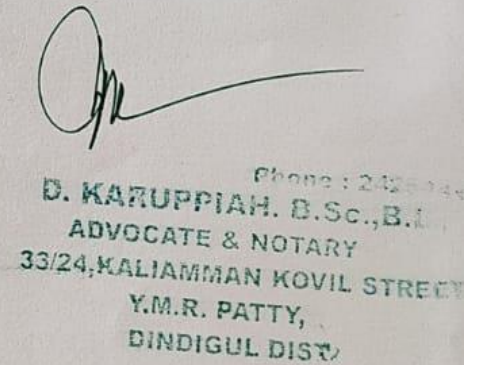 Phone :
D. KARUPPIAH. B.Sc.,B.L.,
ADVOCATE & NOTARY
33/24,KALIAMMAN KOVIL STREET
Y.M.R. PATTY,
DINDIGUL DIST,